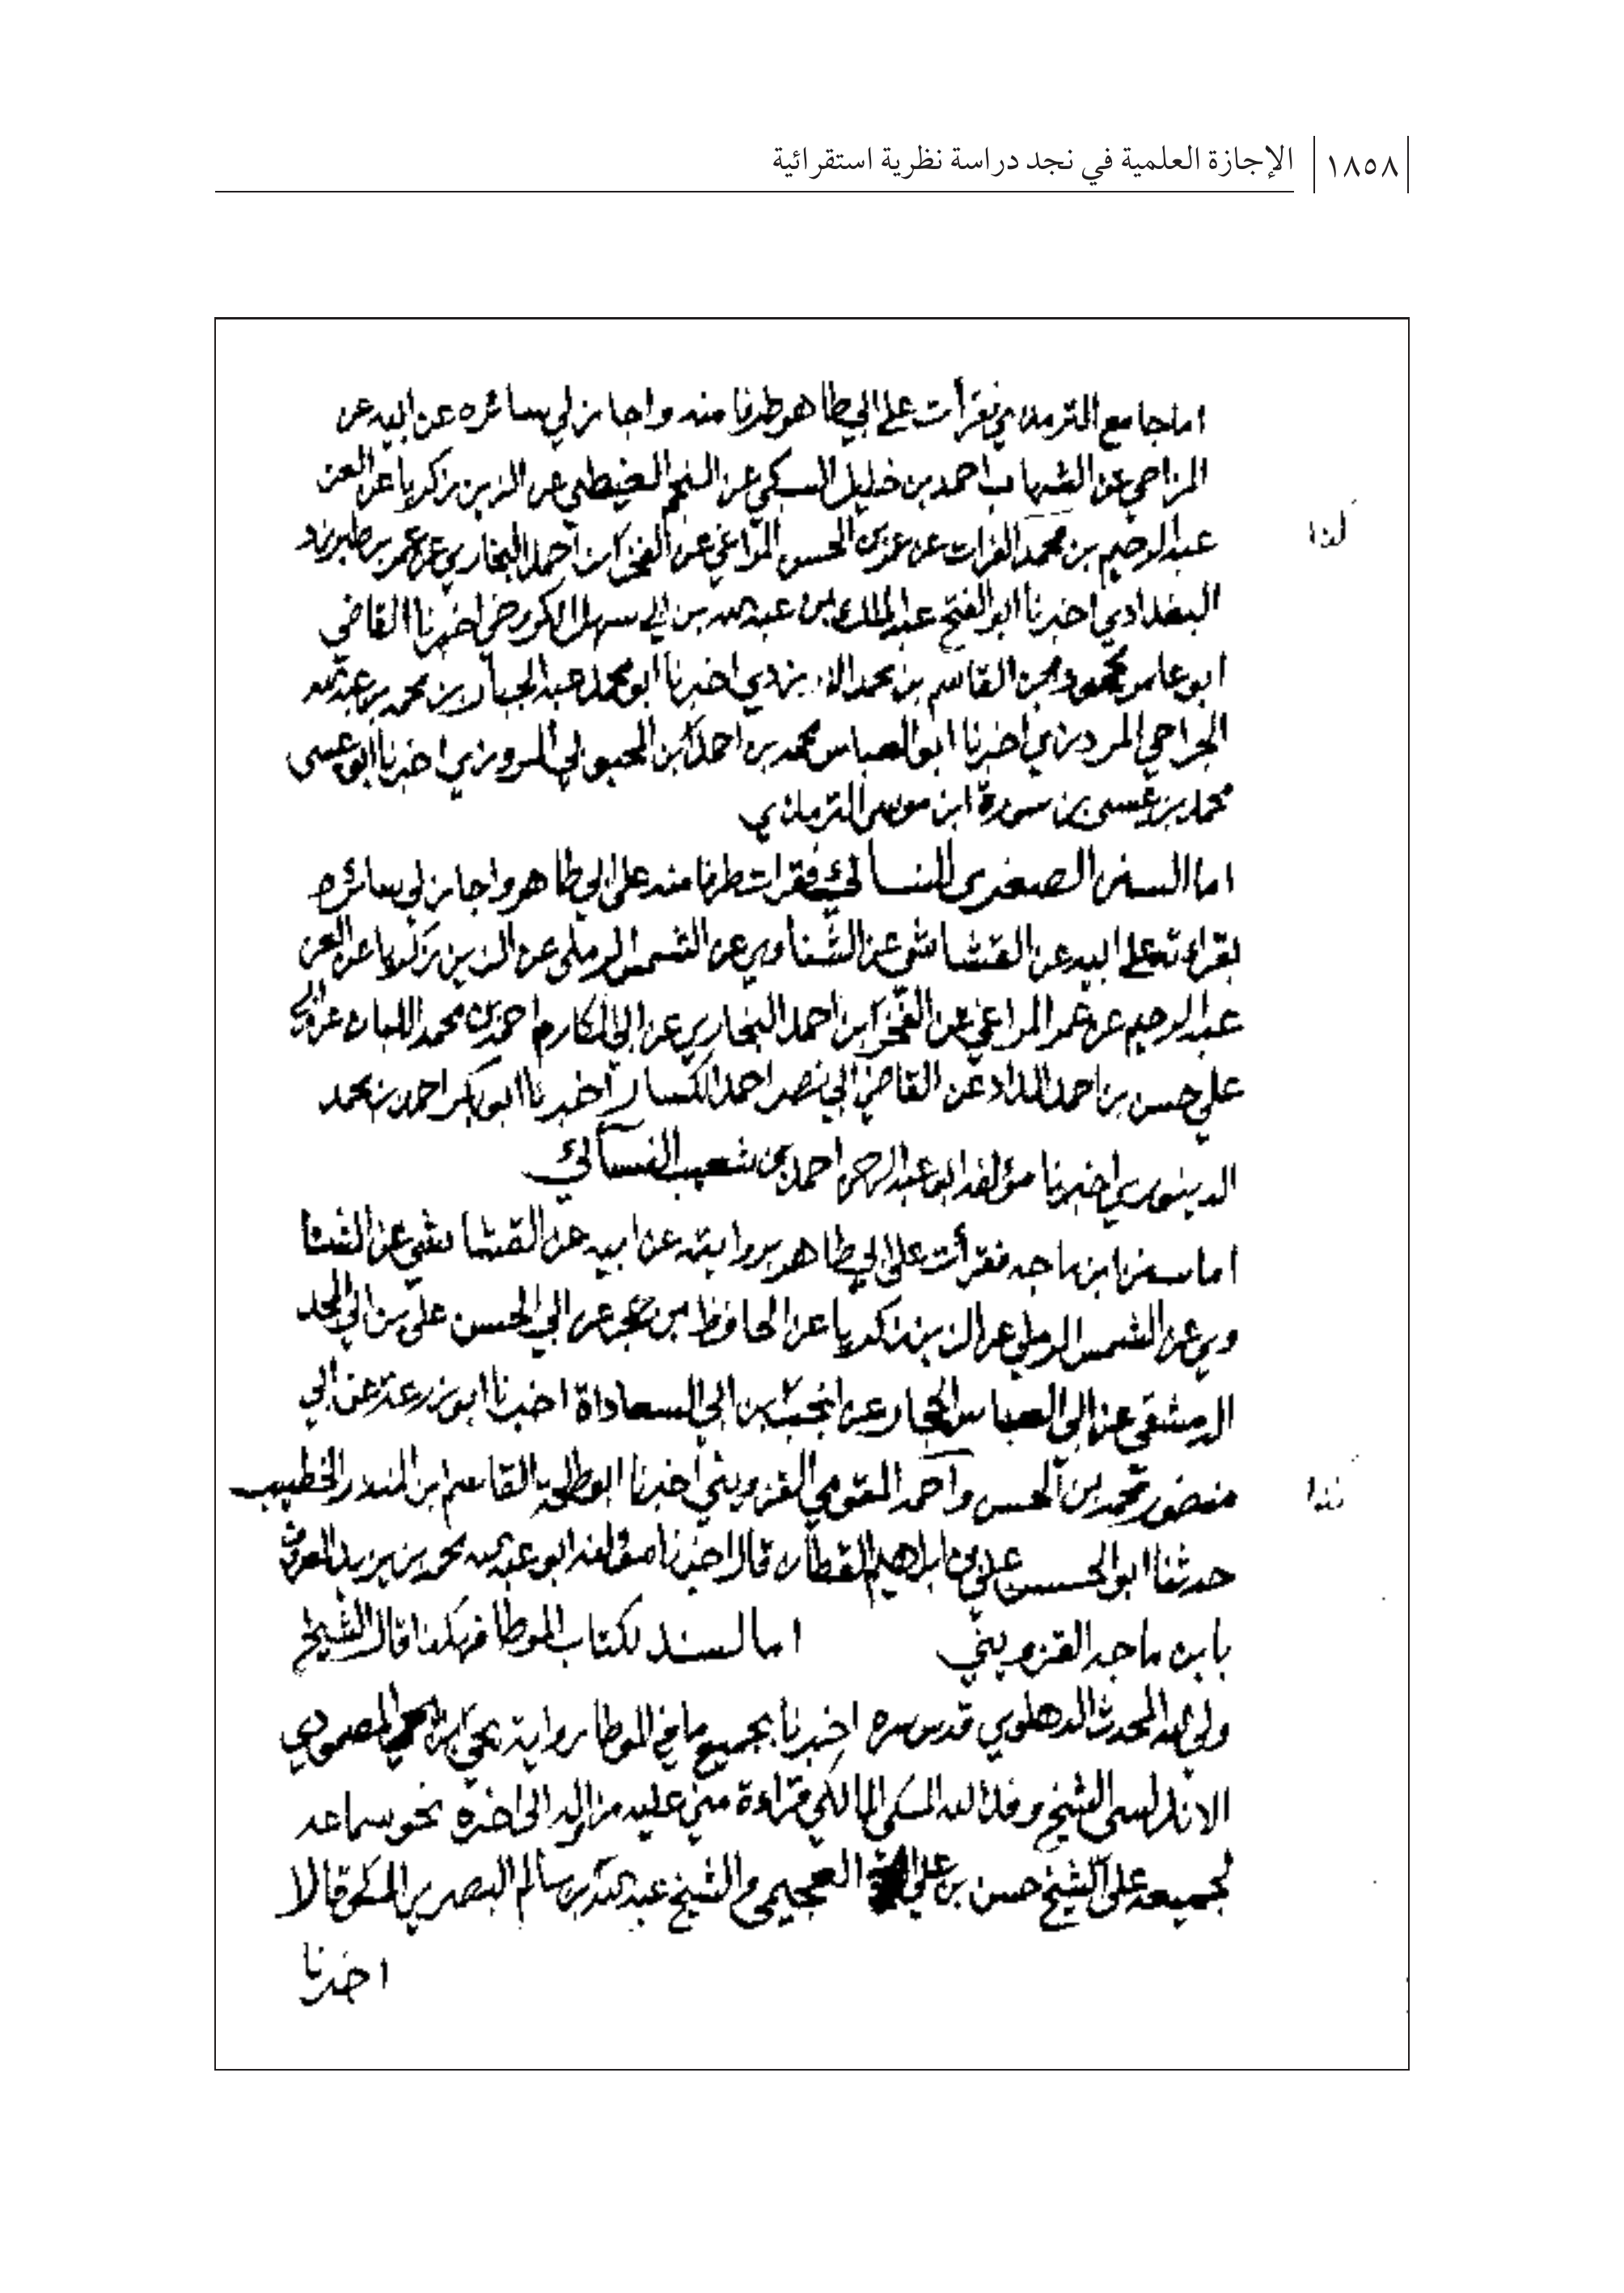 ١٨٥٨ الإجازة العلمية في نجد دراسة نظرية استقرائية
اما جامع الترمذي فقرأت على ابي طاهر طرفا منه واجاز لي سائره عن ابيه عن
المزاحي عن الشهاب احمد بن خليل السبكي عن النجم الغيطي عن الزين زكريا عن العز
عبد الرحيم بن محمد الفرات عن عمر بن الحسن المراغي عن الفخر ابن احمد البخاري عن عمر بن طبرزد
كذا
البغدادي اخبرنا ابو الفتح عبد الملك بن عبد الله بن ابي سهل الكروخي اخبرنا القاضي
ابو عامر محمود بن القاسم بن محمد الازدي اخبرنا ابو محمد عبد الجبار بن محمد بن عبد الله
الجراحي المروزي اخبرنا ابو العباس محمد بن احمد بن المحبوبي المروزي اخبرنا ابو عيسى
محمد بن عيسى بن سورة ابن موسى الترمذي
اما السنن الصغرى للنسائي فقرات طرفا منه على ابي طاهر واجاز لي سائره
بقراءته على ابيه عن القشاشي عن الشناوي عن الشمس الرملي عن الزين زكريا عن العز
عبد الرحيم عن عمر المراغي عن الفخر ابن احمد البخاري عن ابي المكارم احمد بن محمد اللبان عن ابي
علي حسن بن احمد الحداد عن القاضي ابي نصر احمد الكسار اخبرنا ابو بكر احمد بن محمد
الدينوري اخبرنا مؤلفه ابو عبد الرحمن احمد بن شعيب النسائي
اما سنن ابن ماجه فقرأت على ابي طاهر بروايته عن ابيه عن القشاشي عن الشنا
وي عن الشمس الرملي عن الزين زكريا عن الحافظ ابن حجر عن ابي الحسن علي بن ابي المجد
الدمشقي عن ابي العباس الحجار عن انجب ابن ابي السعاداة اخبرنا ابو زرعة عن ابي
منصور محمد بن الحسن واحمد المقومي القزويني اخبرنا ابو طلحة القاسم ابن المنذر الخطيب
كذا
حدثنا ابو الحسن علي بن ابراهيم القطان قال اخبرنا مؤلفه ابو عبد الله محمد بن يزيد المعروف
بابن ماجه القزويني اما لسند لكتاب الموطا فهكذا قال الشيخ
ولي الله المحدث الدهلوي قدس سره اخبرنا بجميع ما في الموطا رواية يحيى ابن يحيى المصمودي
الاندلسي الشيخ وفد الله المكي المالكي قراءة مني عليه من اوله الى اخره نحو سماعه
لجميعه على الشيخ حسن بن علي العجيمي والشيخ عبد الله بن سالم البصري المكي قالا
اخبرنا